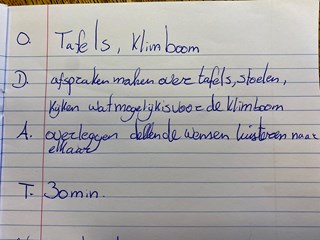 O. Tafels, Klimboom
D. afspraken maken over tafels, stoelen,
kijken wat mogelijk is voor de klimboom
A. overleggen de wensen luisteren naar
elkaar
T. 30 min.